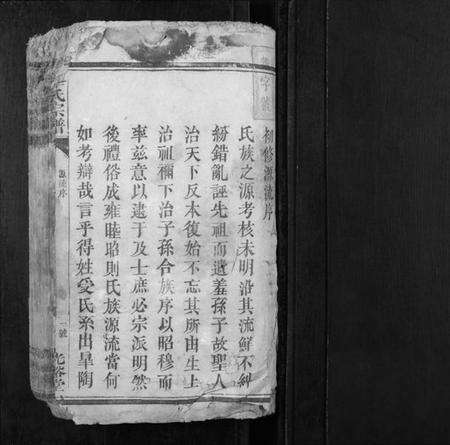 字號
初修源流序
氏族之源考核未明沿其流鮮不糾
紛錯亂誣先祖而遺羞孫子故聖人
治天下反本復始不忘其所由生上
治祖禰下治子孫合族序以昭穆而
率茲意以逮于及士庶必宗派明然
後禮俗成雍睦昭則氏族源流當何
如考辯哉言乎得姓受氏系出臯陶
氏宗譜
源流序
一號
光裕堂